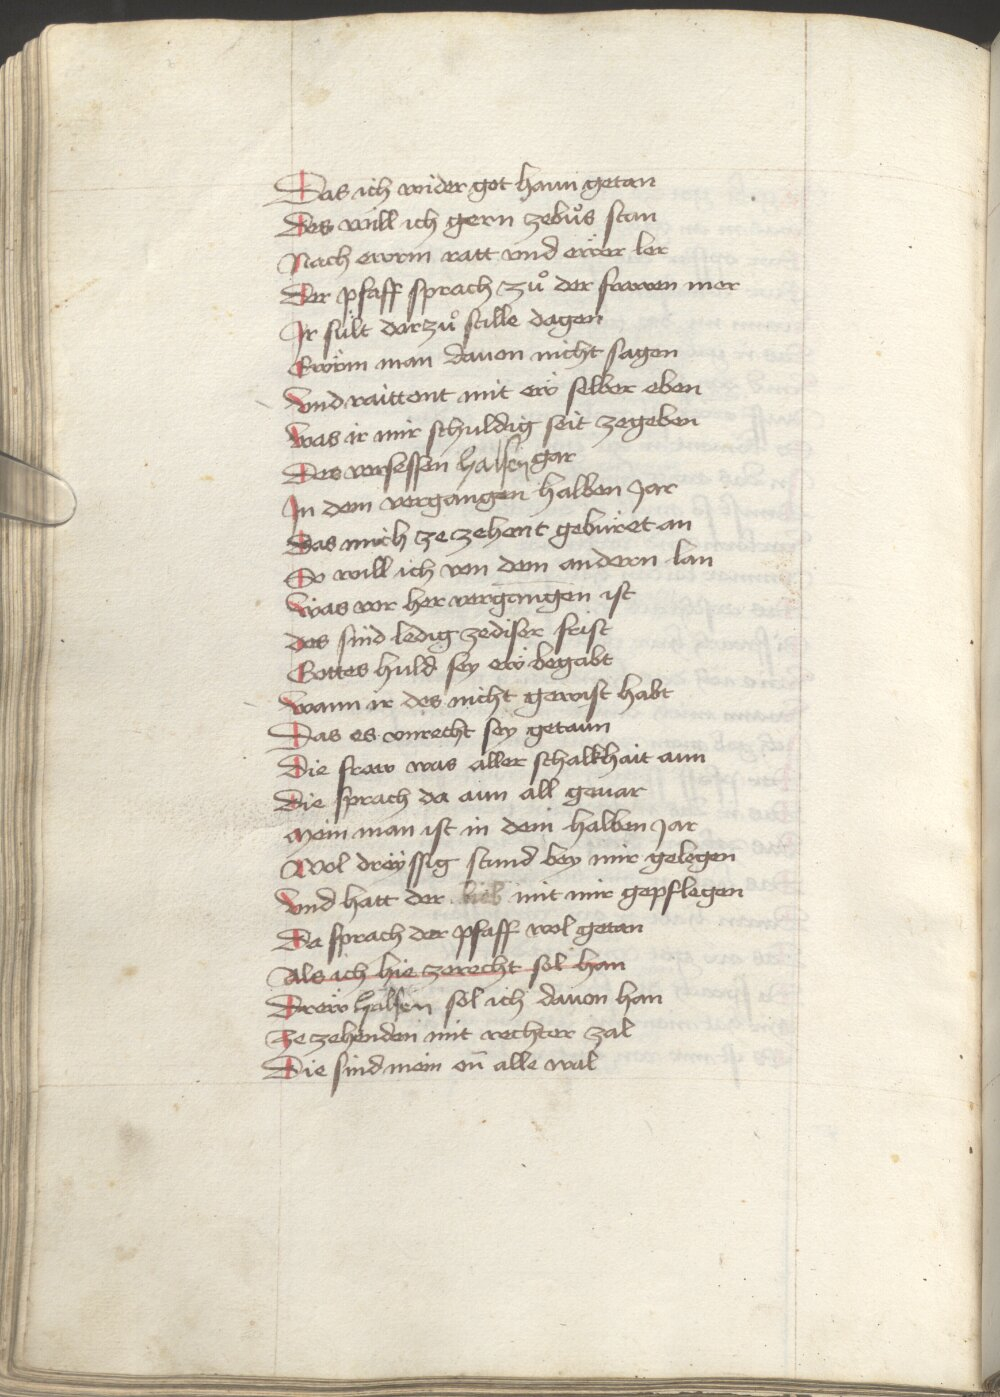 Das ich wider got hann getan
Des will ich gern zebuͦs stan
Nach ewrm ratt vnd ewrer ler
Der pfaff sprach zuͦ der frawen mer
Ir sült darzuͦ stille dagen
Ewrm man dauon nicht sagen
Vnd raittent mit ew selber eben
Was ir mir schuldig seit zegeben
Des versessen halsen gar
In dem vergangen halben Jar
Das mich ze zehent gebüret an
So will ich von dem andern lan
Was vor her vergangen ist
des sind ledig zediser frist
Gottes huld sey ew begabt
Wann ir des nicht gewist habt
Das es vnrecht sey getaun
Die fraw was aller schalkhait aun
Die sprach da aun all geuar
Mein man ist in dem halben Jar
Wol dreyssig stund bey mir gelegen
Vnd hatt der lieb mit mir gepflegen
Da sprach der pfaff wol getan
Als ich hie zerecht sol han
Drew halsen sol ich dauon han
Ze zehenden mit rechter zal
Die sind mein on̄ alle wal